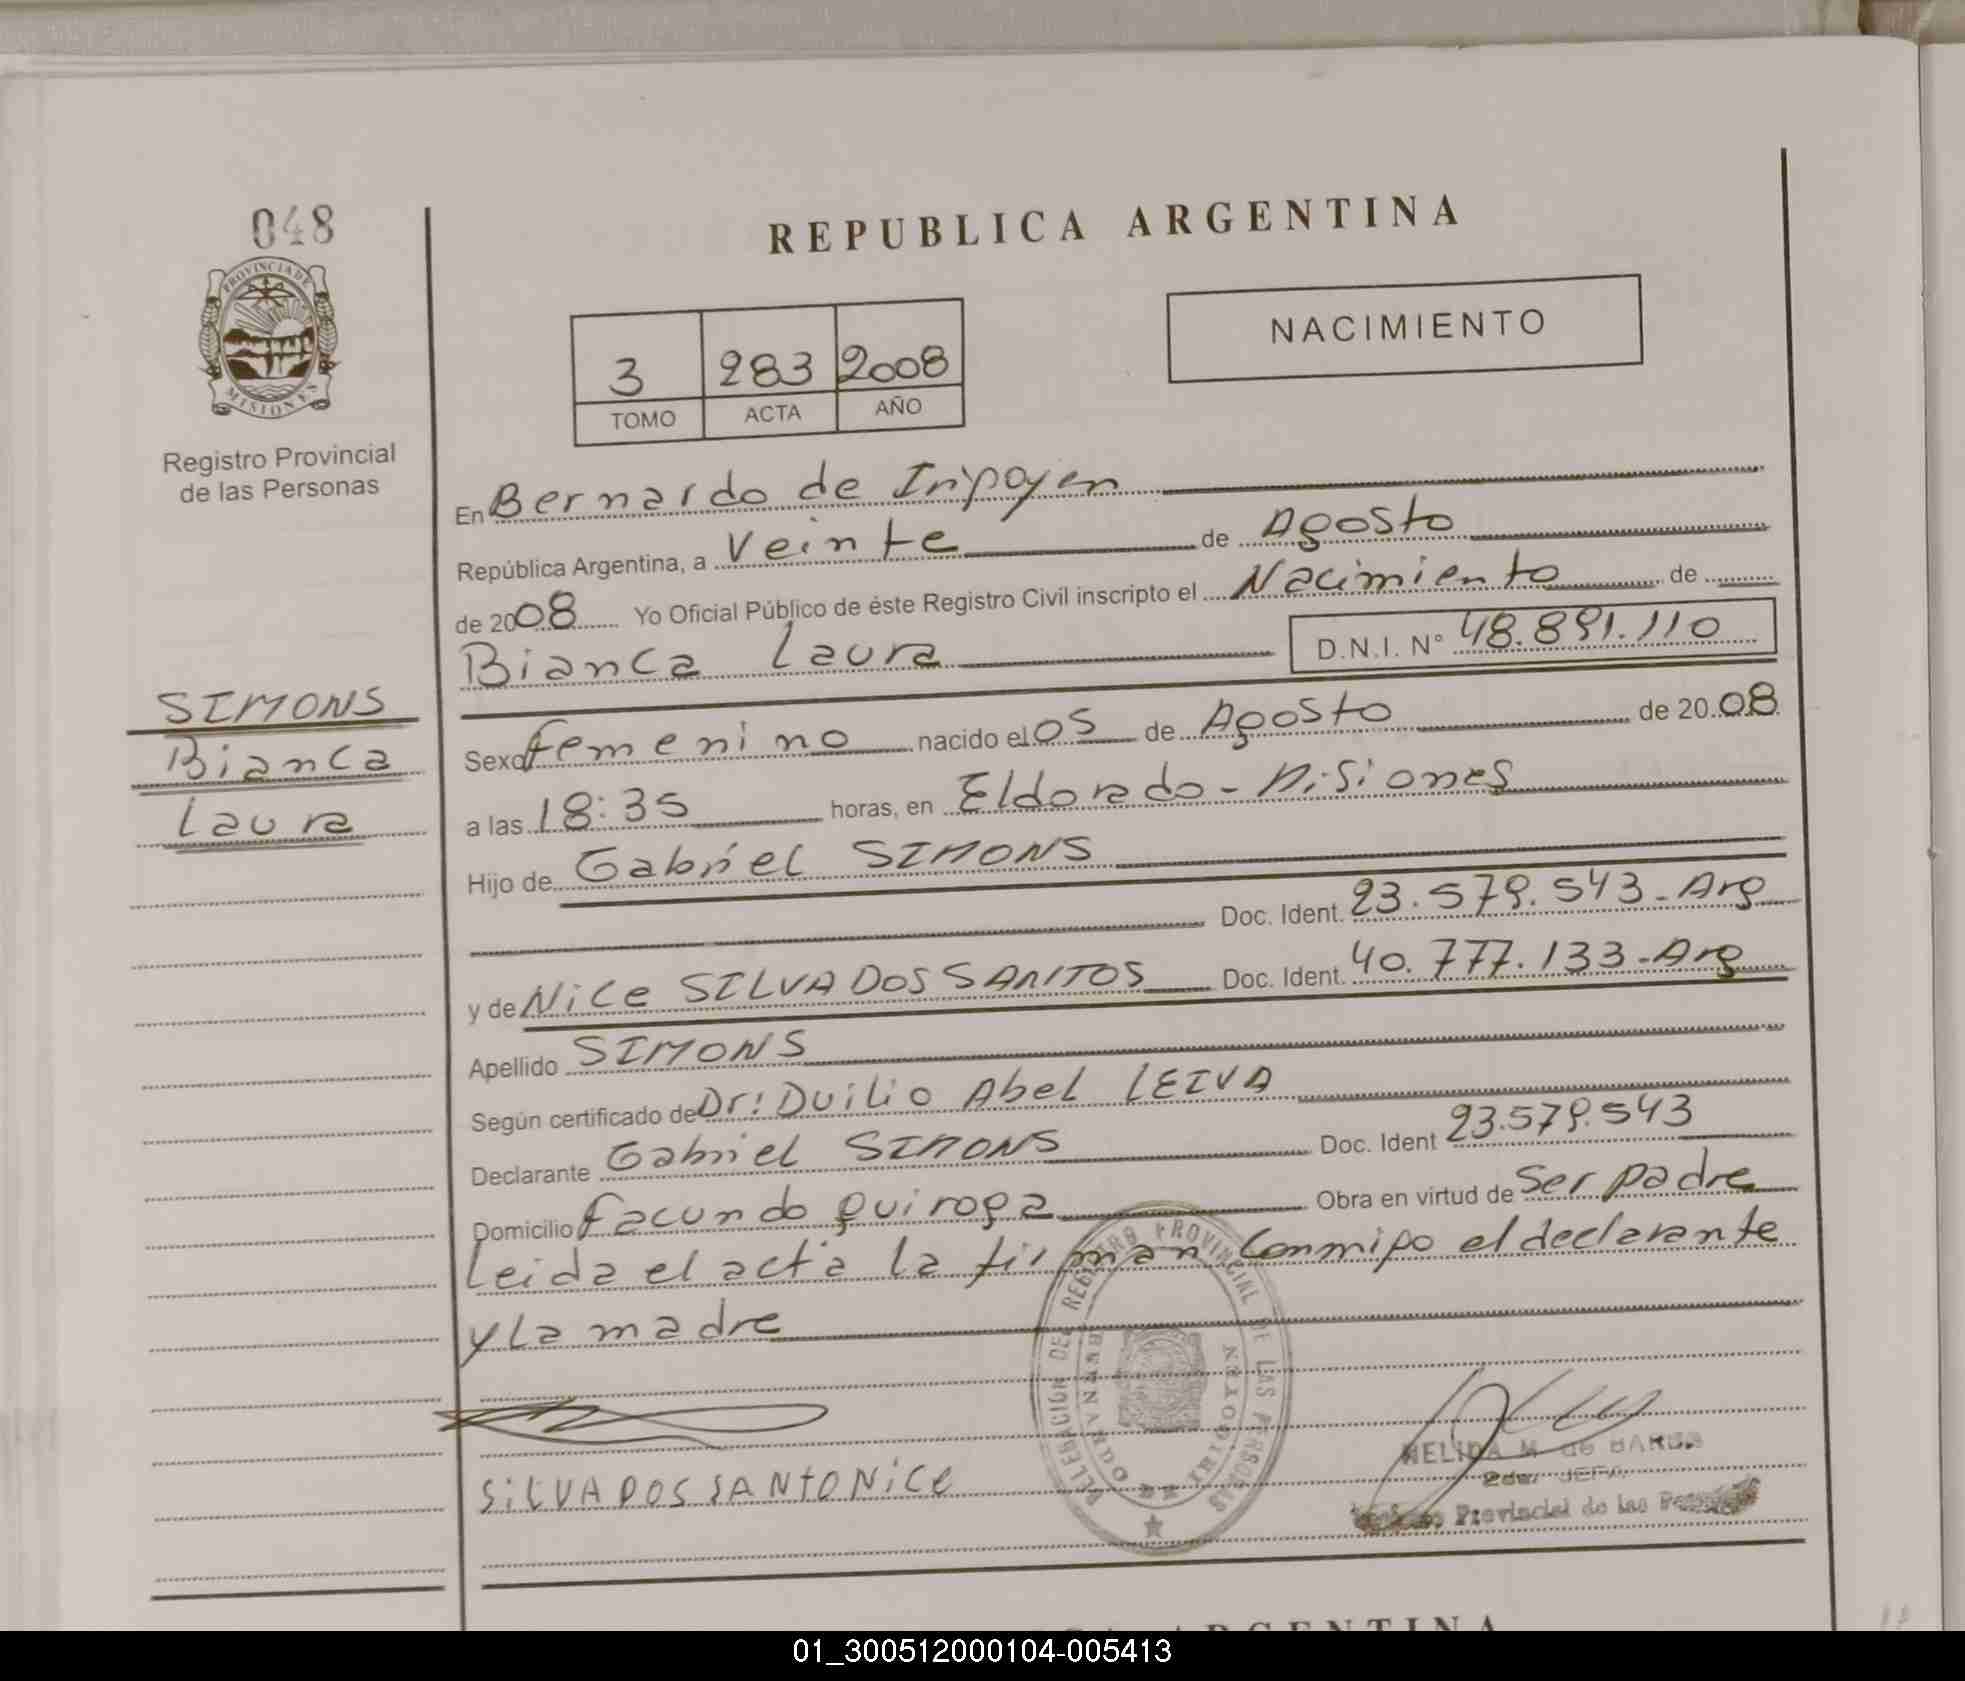 048
REPUBLICA ARGENTINA
PROVINCIA DE
MISIONES
Registro Provincial
de las Personas
3 283 2008
TOMO ACTA AÑO
NACIMIENTO
En Bernardo de Iripoyen
República Argentina, a Veinte de Agosto
de 2008 Yo Oficial Público de éste Registro Civil inscripto el Nacimiento de
Bianca Laura D.N.I. N° 48.891.110
SIMONS
Bianca
Laura
Sexo femenino nacido el 05 de Agosto de 2008
a las 18:35 horas, en Eldorado - Misiones
Hijo de Gabriel SIMONS
Doc. Ident. 23.579.543 - Arg
y de Nice SILVA DOS SANTOS Doc. Ident. 40.777.133 - Arg
Apellido SIMONS
Según certificado de Dr: Duilio Abel LEIVA
Declarante Gabriel SIMONS Doc. Ident 23.579.543
Domicilio Facundo Quiroga Obra en virtud de Ser padre
Leida el acta la firman Conmigo el declarante
y La madre
REGISTRO PROVINCIAL DE LAS PERSONAS
BERNARDO IRIGOYEN
SILVA DOS SANTO NiCe
NELIDA M. de
JEFA
Provincial de las
ARGENTINA
01_300512000104-005413